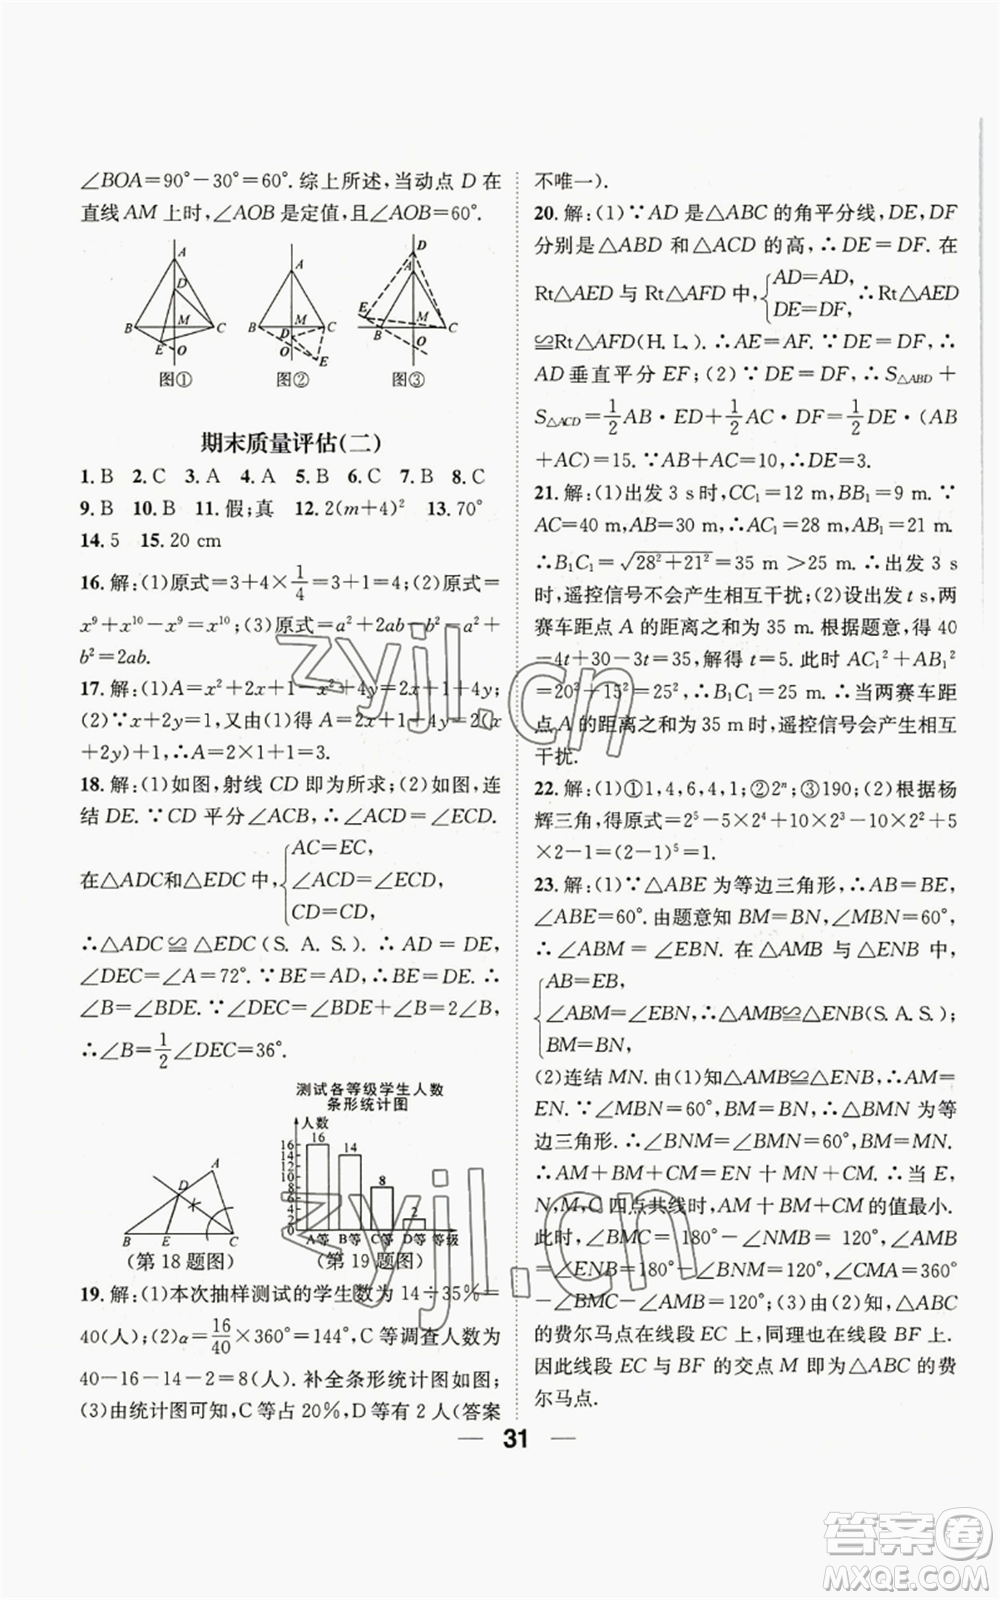 ∠BOA=90°-30°=60°. 综上所述,当动点 D 在
直线 AM 上时,∠AOB 是定值,且∠AOB=60°.
A
D
B
M
C
E
O
图①
A
B
M
C
D
O
E
图②
D
A
E
M
B
C
O
图③
期末质量评估(二)
1. B 2. C 3. A 4. A 5. B 6. C 7. B 8. C
9. B 10. B 11. 假;真 12. 2(m+4)² 13. 70°
14. 5 15. 20 cm
16. 解:(1)原式=3+4×1/4=3+1=4;(2)原式=
x⁹+x¹⁰-x⁹=x¹⁰;(3)原式=a²+2ab-b²-a²+
b²=2ab.
17. 解:(1)A=x²+2x+1-x²+4y=2x+1+4y;
(2)∵x+2y=1,又由(1)得 A=2x+1+4y=2(x
+2y)+1,∴A=2×1+1=3.
18. 解:(1)如图,射线 CD 即为所求;(2)如图,连
结 DE. ∵CD 平分∠ACB,∴∠ACD=∠ECD.
在△ADC和△EDC 中,{AC=EC,
∠ACD=∠ECD,
CD=CD,
∴△ADC≌△EDC(S. A. S.). ∴AD=DE,
∠DEC=∠A=72°. ∵BE=AD,∴BE=DE.
∴∠B=∠BDE. ∵∠DEC=∠BDE+∠B=2∠B,
∴∠B=1/2∠DEC=36°.
A
D
B
E
C
(第 18 题图)
测试各等级学生人数
条形统计图
人数
16
14
12
10
8
6
4
2
0
16
14
8
2
A等 B等 C等 D等 等级
(第 19 题图)
19. 解:(1)本次抽样测试的学生数为 14÷35%=
40(人);(2)α=16/40×360°=144°,C 等调查人数为
40-16-14-2=8(人). 补全条形统计图如图;
(3)由统计图可知,C 等占 20%,D 等有 2 人(答案
不唯一).
20. 解:(1)∵AD 是△ABC 的角平分线,DE,DF
分别是△ABD 和△ACD 的高,∴DE=DF. 在
Rt△AED 与 Rt△AFD 中,{AD=AD,
DE=DF, ∴Rt△AED
≌Rt△AFD(H. L.). ∴AE=AF. ∵DE=DF,∴
AD 垂直平分 EF;(2)∵DE=DF,∴S△ABD+
S△ACD=1/2AB·ED+1/2AC·DF=1/2DE·(AB
+AC)=15. ∵AB+AC=10,∴DE=3.
21. 解:(1)出发 3 s 时,CC₁=12 m,BB₁=9 m. ∵
AC=40 m,AB=30 m,∴AC₁=28 m,AB₁=21 m.
∴B₁C₁=√28²+21²=35 m>25 m. ∴出发 3 s
时,遥控信号不会产生相互干扰;(2)设出发 t s,两
赛车距点 A 的距离之和为 35 m. 根据题意,得 40
-4t+30-3t=35. 解得 t=5. 此时 AC₁²+AB₁²
=20²+15²=25²,∴B₁C₁=25. ∴当两赛车距
点 A 的距离之和为 35 m 时,遥控信号会产生相互
干扰.
22. 解:(1)①1,4,6,4,1;②2ⁿ;③190;(2)根据杨
辉三角,得原式=2⁵-5×2⁴+10×2³-10×2²+5
×2-1=(2-1)⁵=1.
23. 解:(1)∵△ABE 为等边三角形,∴AB=BE,
∠ABE=60°. 由题意知 BM=BN,∠MBN=60°,
∴∠ABM=∠EBN. 在△AMB 与△ENB 中,
{AB=EB,
∠ABM=∠EBN,∴△AMB≌△ENB(S. A. S.);
BM=BN,
(2)连结 MN. 由(1)知△AMB≌△ENB,∴AM=
EN. ∵∠MBN=60°,BM=BN,∴△BMN 为等
边三角形. ∴∠BNM=∠BMN=60°,BM=MN.
∴AM+BM+CM=EN+MN+CM. ∴当 E,
N,M,C 四点共线时,AM+BM+CM 的值最小.
此时,∠BMC=180°-∠NMB=120°,∠AMB=
∠ENB=180°-∠BNM=120°,∠CMA=360°
-∠BMC-∠AMB=120°;(3)由(2)知,△ABC
的费尔马点在线段 EC 上,同理也在线段 BF 上.
因此线段 EC 与 BF 的交点 M 即为△ABC 的费
尔马点.
31
zyjl.cn
zyjl.cn
答案卷
MXQE.COM